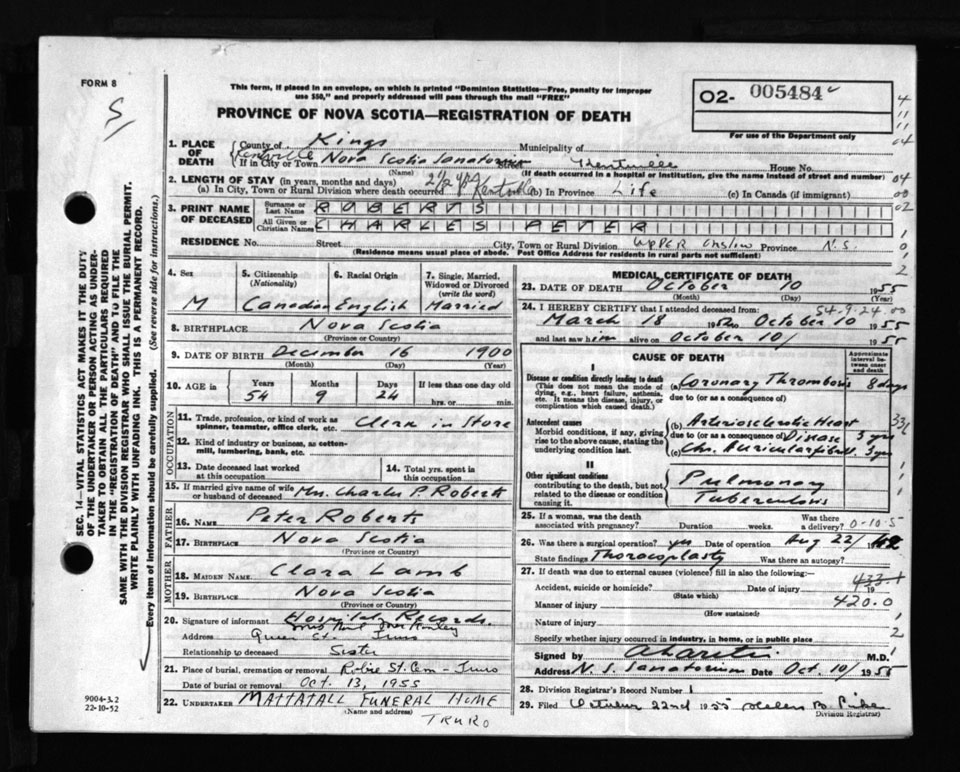 FORM 8
S
This form, if placed in an envelope, on which is printed "Dominion Statistics—Free, penalty for improper
use $50," and properly addressed will pass through the mail "FREE"
PROVINCE OF NOVA SCOTIA—REGISTRATION OF DEATH
02- 005484
For use of the Department only
SEC. 14—VITAL STATISTICS ACT MAKES IT THE DUTY
OF THE UNDERTAKER OR PERSON ACTING AS UNDER-
TAKER TO OBTAIN ALL THE PARTICULARS REQUIRED
IN THE "REGISTRATION OF DEATH" AND TO FILE THE
SAME WITH THE DIVISION REGISTRAR WHO SHALL ISSUE THE BURIAL PERMIT.
WRITE PLAINLY WITH UNFADING INK. THIS IS A PERMANENT RECORD.
Every item of information should be carefully supplied. (See reverse side for instructions.)
1. PLACE OF DEATH
County of Kings Municipality of
Kentville
If in City or Town Nova Scotia Sanatorium Street Kentville House No.
(Name) (If death occurred in a hospital or institution, give the name instead of street and number)
2. LENGTH OF STAY (in years, months and days)
(a) In City, Town or Rural Division where death occurred 2 1/2 yrs Kentville (b) In Province Life (c) In Canada (if immigrant)
3. PRINT NAME OF DECEASED
Surname or Last Name ROBERTS
All Given or Christian Names CHARLES PETER
RESIDENCE No. Street City, Town or Rural Division Upper Onslow Province N.S.
(Residence means usual place of abode. Post Office Address for residents in rural parts not sufficient)
4. Sex M
5. Citizenship (Nationality) Canadian
6. Racial Origin English
7. Single, Married, Widowed or Divorced (write the word) Married
8. BIRTHPLACE Nova Scotia
(Province or Country)
9. DATE OF BIRTH December 16 1900
(Month) (Day) (Year)
10. AGE in Years 54 Months 9 Days 24 If less than one day old hrs. or min.
OCCUPATION
11. Trade, profession, or kind of work as spinner, teamster, office clerk, etc. Clerk in Store
12. Kind of industry or business, as cotton-mill, lumbering, bank, etc.
13. Date deceased last worked at this occupation
14. Total yrs. spent in this occupation
15. If married give name of wife or husband of deceased Mrs. Charles P. Roberts
FATHER
16. NAME Peter Roberts
17. BIRTHPLACE Nova Scotia
(Province or Country)
MOTHER
18. MAIDEN NAME Clara Lamb
19. BIRTHPLACE Nova Scotia
(Province or Country)
20. Signature of informant Hospital Records.
Address Queen St. Truro
Relationship to deceased Sister
21. Place of burial, cremation or removal Robie St. Cem - Truro
Date of burial or removal Oct. 13, 1955
22. UNDERTAKER MATTATALL FUNERAL HOME
(Name and address)
TRURO
9004-3.2
22-10-52
MEDICAL CERTIFICATE OF DEATH
23. DATE OF DEATH October 10 1955
(Month) (Day) (Year)
54-9-24.00
24. I HEREBY CERTIFY that I attended deceased from:
March 18 1952 to October 10 1955
and last saw him alive on October 10/ 1955
CAUSE OF DEATH
Approximate interval between onset and death
I
Disease or condition directly leading to death
(This does not mean the mode of dying, e.g., heart failure, asthenia, etc. It means the disease, injury, or complication which caused death.)
(a) Coronary Thrombosis 8 days
due to (or as a consequence of)
Antecedent causes
Morbid conditions, if any, giving rise to the above cause, stating the underlying condition last.
(b) Arteriosclerotic Heart
due to (or as a consequence of) Disease 3 yrs
(c) Chr. Auricular fibrill. 3 yrs
II
Other significant conditions
contributing to the death, but not related to the disease or condition causing it.
Pulmonary
Tuberculosis
25. If a woman, was the death associated with pregnancy? Duration weeks. Was there a delivery? 0-10-5
26. Was there a surgical operation? yes Date of operation Aug 22/
State findings Thoracoplasty Was there an autopsy?
27. If death was due to external causes (violence) fill in also the following:—
433.1
Accident, suicide or homicide? Date of injury 19
(State which)
420.0
Manner of injury
(How sustained)
Nature of injury
Specify whether injury occurred in industry, in home, or in public place
Signed by M.D.
Address N. S. Sanatorium Date Oct. 10/ 1955
28. Division Registrar's Record Number 1
29. Filed October 22nd 1955 Helen B.
Division Registrar)